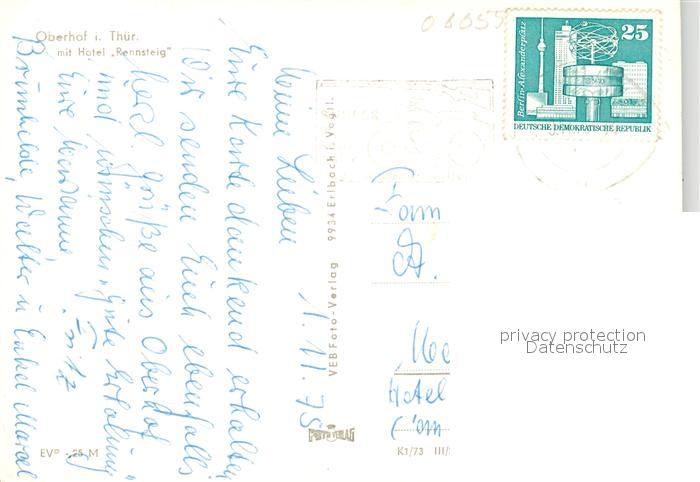 Oberhof i. Thür.
mit Hotel „Rennsteig"
1.11.75
Meine Lieben
Eure Karte dankend erhalten
Wir senden Euch ebenfalls
herzl. Grüße aus Oberhof
und wünschen gute Erholung
Eure Marianne Fritz
Brunhilde, Walter u Enkel Marcel
EVP -,25 M
VEB Foto-Verlag 9934 Erlbach i. Vogtl.
FOTO VERLAG
K1/73 III/
Berlin-Alexanderplatz
25
DEUTSCHE DEMOKRATISCHE REPUBLIK
Fam
A.
Hotel
privacy protection
Datenschutz